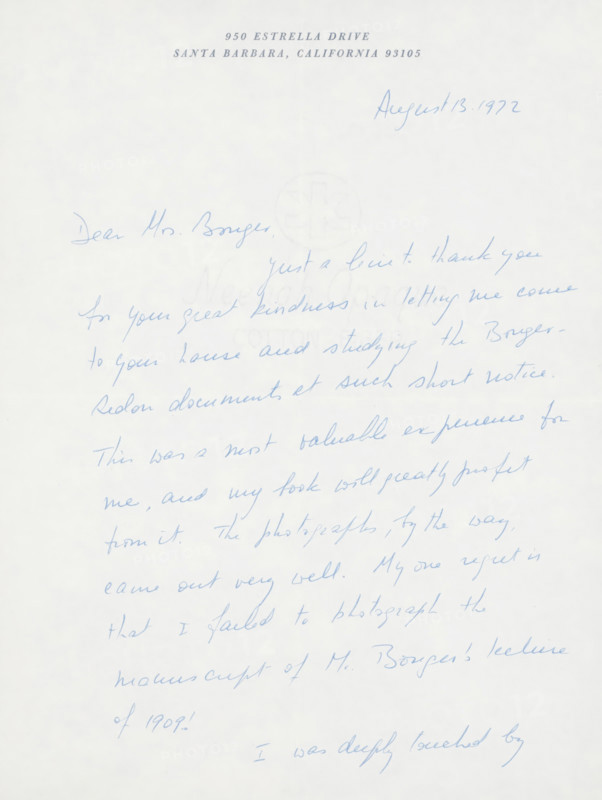 950 ESTRELLA DRIVE
SANTA BARBARA, CALIFORNIA 93105
August 13. 1972
Dear Mrs. Bonger.
Just a line t. thank you
for your great kindness in letting me come
to your house and studying the Bonger-
Redon documents at such short notice.
This was a most valuable experience for
me, and my book will greatly profit
from it. The photographs, by the way,
came out very well. My one regret is
that I failed to photograph the
manuscript of M. Bonger's lecture
of 1909!
I was deeply touched by